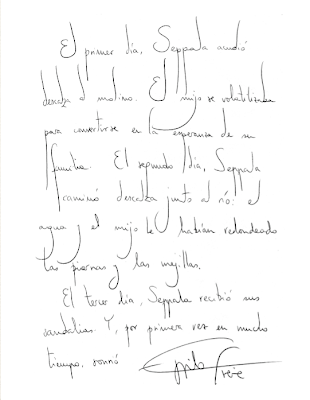 El primer día, Seppala acudió
descalza al molino. El mijo se volatilizaba
para convertirse en la esperanza de su
familia. El segundo día, Seppala
caminó descalza junto al río: el
agua y el mijo le habían redondeado
las piernas y las mejillas.
El tercer día, Seppala recibió sus
sandalias. Y, por primera vez en mucho
tiempo, sonrió